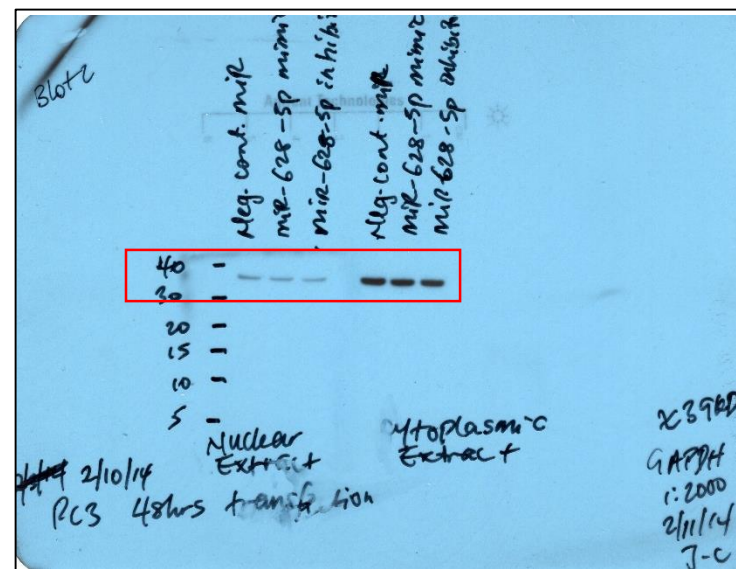 Blot 2
Neg. cont. miR
miR-628-5p mimic
miR-628-5p inhibi
Neg. cont. miR
miR-628-5p mimic
miR-628-5p inhibit
Agilent Technologies
40
30
20
15
10
5
Nuclear
Extract
Cytoplasmic
Extract
2/10/14
PC3 48hrs transfection
GAPDH
1:2000
2/11/14
J-C